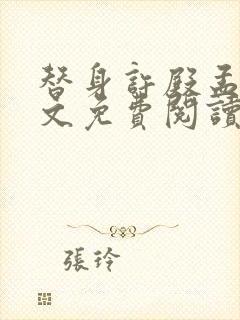 替身許殿孟
文免費閱讀
張玲